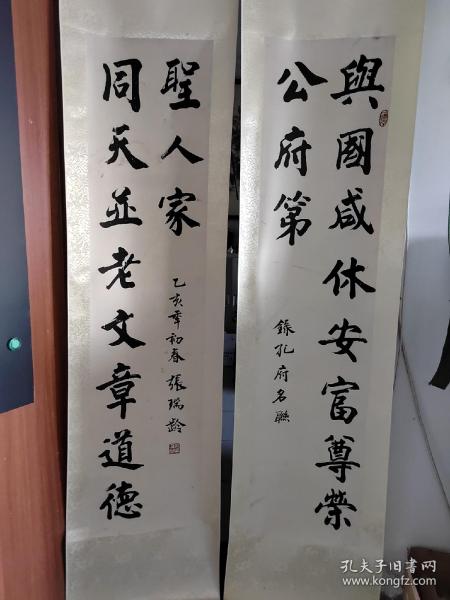 與國咸休安富尊榮
公府第
錄孔府名聯
同天並老文章道德
聖人家
乙亥年初春張瑞齡
孔夫子旧书网
www.kongfz.com